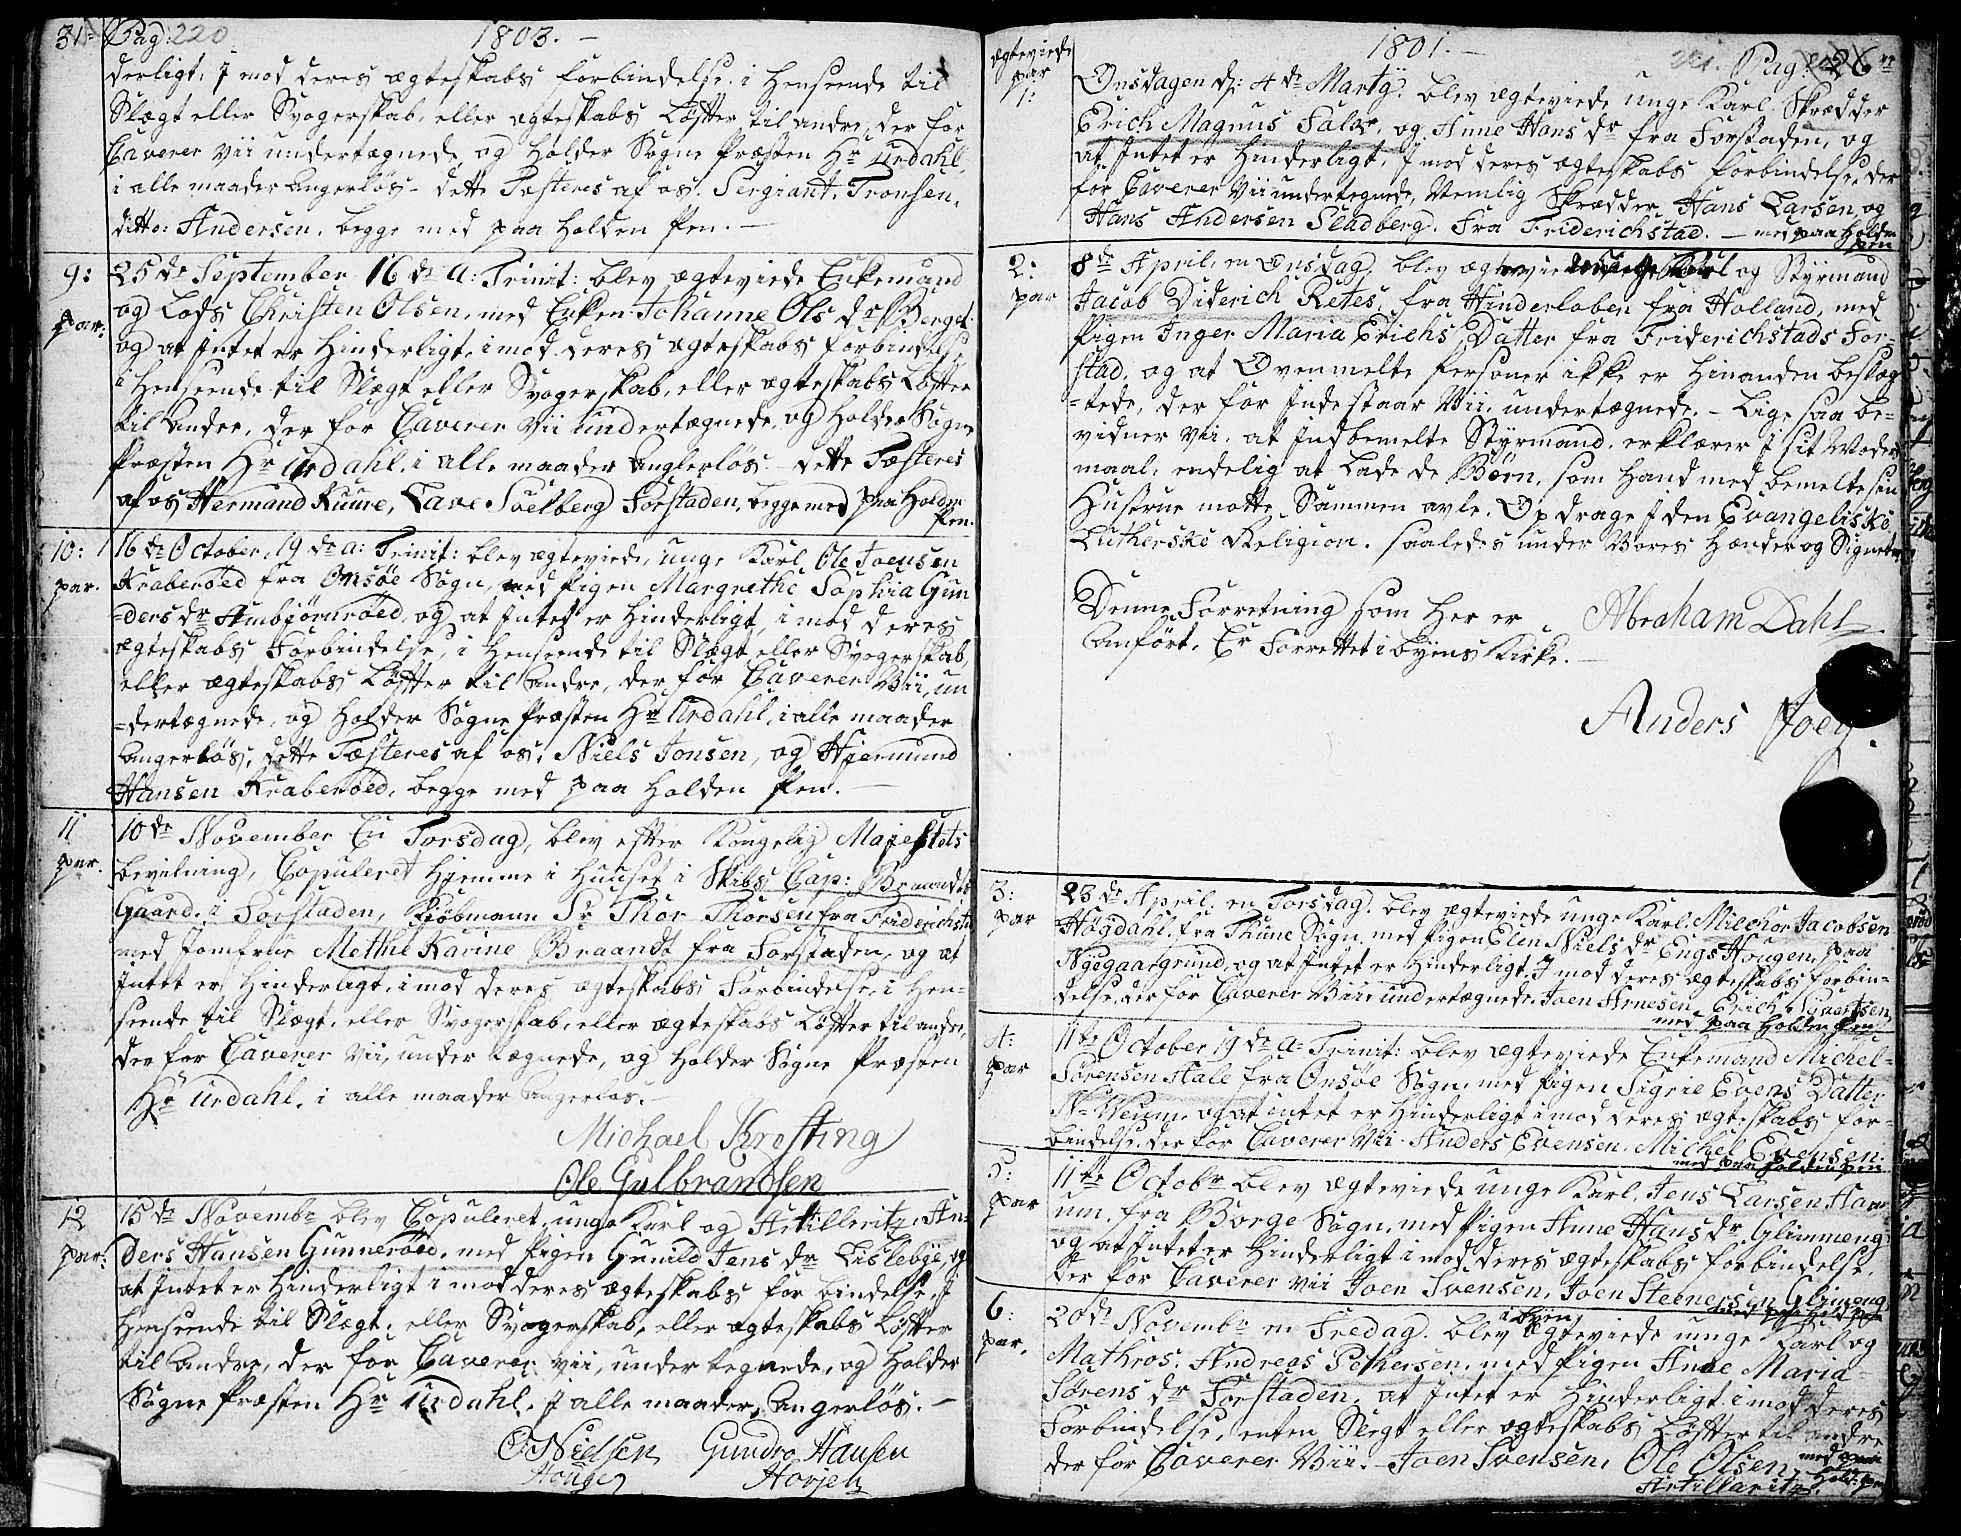 31 Pag: 220 1803. —
derligt, J mod deres ægteskabs forbindelse i henseende til
Slægt eller Svogerskab, eller ægteskabs Løfter til andre, der for
Caverer vii undertegnede, og holder Sogne Præsten Hr Urdahl,
i alle maader angerløs — dette Testeres af os. Sergiant, Tronsen,
ditto: Andersen, begge med paa holden Pen. —
9: 25de September 16de a: Trinit: blev ægteviede Enkemand
par. og Lods Christen Olsen, med Enken Johanne Ols dr Berget
og at Intet er hinderligt, i mod deres ægteskabs forbindelse
i Henseende til Slægt eller Svogerskab, eller ægteskabs Løfter
til andre, der for Caverer vii undertægnede, og holder Sogne
Præsten Hr Urdahl, i alle maader anglerløs — dette Testeres
af os Hermand Kuure, Lave Soelberg Forstaden, begge med paa holden
Pen.
10: 16de October, 19de a: Trinit: blev ægteviede, unge Karl, Ole Joensen
par. Kraberøed fra Onsøe Sogn, med Pigen Margrethe Sophia Gun
=ders dr Ambjørnrøed, og at Intet er hinderligt, i mod deres
ægteskabs Forbindelse, i Henseende til Slægt eller Svogerskab,
eller ægteskabs Løfter til andre, der for Caverer Vii, un
=dertægnede, og holder Sogne Præsten Hr Urdahl, i alle maader
angerløs, dette Testeres af os, Niels Jonsen, og Hjermund
Hansen Kraberøed, begge med paa holden Pen. —
11 10de November En Torsdag, blev efter Kongelig Majestets
par. bevilning, Copuleret hjemme i Huuset i Skibs Cap: Brandts
Gaard. i Forstaden, Kiøbmann Sr Thor Thorsen fra Friderichsta
med Jomfrue Methe Karine Braandt fra Forstaden, og at
Intet er hinderligt, i mod deres ægteskabs Forbindelse, i Hen=
seende til Slægt, eller Svogerskab, eller ægteskabs Løfter til andre,
der for Caverer vii, under tægnede, og holder Sogne Præsten
Hr Urdahl, i alle maader angerløs. —
Michael Krefting
Ole Gulbrandsen
12 15de Novembr blev Copuleret, unge Karl og Artilleritz, An=
par: ders Hansen Gunnerøed, med Pigen Gunild Jens dr Lislebye, og
at Intet er hinderligt i mod deres ægteskabs for bindelse, J
henseende til Slægt, eller Svogerskab, eller ægteskabs Løfter
til andre, der for Caverer vii, under tegnede, og holder
Sogne Præsten Hr Urdahl, J alle maader, angerløs. —
O Nielsen Gundro Hansen
Houge
ægteviede 1801. — 221. Pag: 26
par
1: Onsdagen d: 4de Martij, blev ægteviede unge Karl, Skrædder
Erich Magnus Falk, og Anne Hans dr fra Forstaden, og
at Intet er hinderligt, J mod deres ægteskabs forbindelse, der
for Caverer Vii undertegnede, Nemlig Skrædder Hans Larsen, og
Hans Andersen Sladberg. fra Friderichstad. — med paa holden
pen
2: 8de April, en Onsdag, blev ægteviede unge Karl og Styrmand
par Jacob Diderich Retes, fra Hinderloben fra Holland, med
Pigen Inger Maria Erichs Datter fra Friderichstads For=
stad, og at Ovenmelte Personer ikke er hinanden beslæg
=tede, der for Indestaar Vii, undertægnede. — Lige saa be=
vidner vii, at Indbemelte Styrmand, erklærer J sit Moders
maal, endelig at lade de Børn, som hand med bemelte sin
Hustrue motte Sammen avle. Opdrage J den Evangeliske
Lutherske Religion. saaledes under Vores Hænder og Signeter
Denne Forretning som her er Abraham Dahl
anført, Er Forrettet i byens Kirke. —
Anders
3: 23de April, en Torsdag, blev ægteviede unge Karl, Milchor Jacobsen
par Høgdahl, fra Thune Sogn med Pigen Elen Niels dr Engs Hougen, paa
Nyegaargrund, og at Intet er hinderligt, J mod deres ægteskabs forbin=
delse, der for Caverer Vii, undertægnede, Joen Arnesen, Erich Syvertsen,
med paa holden Pen
4: 11te October 19de a: Trinit: blev ægteviede Enkemand Michel
par Sørensen Hale fra Onsøe Sogn, med Pigen Sigrie Evens Datter
N: Veum, og at intet er hinderligt i mod deres ægteskabs for=
bindelse, der for Caverer Vii. Anders Evensen, Michel Evensen.
med paa holden pen
5: 11te Octobr blev ægteviede unge Karl, Jens Larsen Ham
par um. fra Borge Sogn, med Pigen Anne Hans dr Glimmeng
og at Intet er hinderligt i mod deres ægteskabs forbindelse,
der for Caverer vii Joen Svensen, Joen Steenersen Glimeng
6: 20de Novembr en Fredag, blev i byen ægteviede unge Karl og
par. Mathros, Andreas Pettersen, med Pigen Anne Maria
Sørens dr Forstaden, at Intet er hinderligt i mod deres
Forbindelse, enten Slegt eller ægteskabs Løfter til andre
der for Caverer Vii. — Joen Svensen, Ole Olsen, med paa
Artilleritz. hold: pen